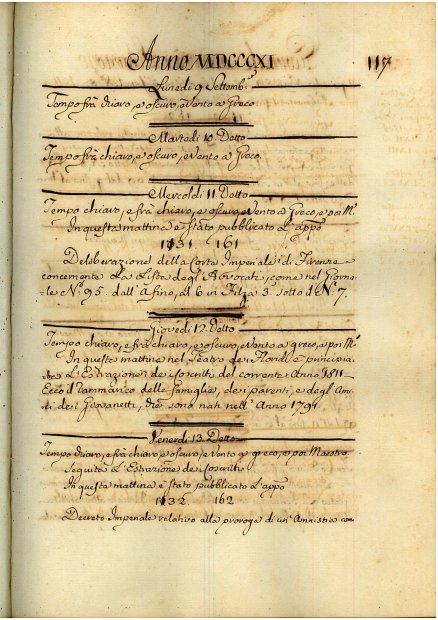 Anno MDCCCXI
117
Lunedi 9 Settemb.e
Tempo frà chiaro, e oscuro, e Vento a Greco
Martedi 10. Detto
Tempo frà chiaro, e oscuro, e Vento a Greco.
Mercoldi 11 Detto
Tempo chiaro, e frà chiaro, e oscuro, e Vento a Greco, e poi M.
In questa mattina è stato pubblicato l'app.o
1131 161
Deliberazione della Corte Imperiale di Firenze
concernente La Lista degl'Avvocati, come nel Giorna-
le N.o 95. dall' a fino, al 6 in Filza 3.a sotto d N.o 7.
Giovedi 12. Detto
Tempo chiaro, e frà chiaro, e oscuro, e Vento a greco, e poi M.
In questa mattina nel Teatro dei Floridi è principia
L'Estrazione dei Coscritti del corrente Anno 1811
Ecco il rammarico delle famiglie, dei parenti, e degl'Ami-
ci dei Giovanetti, che sono nati nell'Anno 1791
Venerdi 13. Detto
Tempo chiaro, e frà chiaro, e oscuro, e Vento a greco, e poi Maestro
Seguita L'Estrazione dei Coscritti
In questa mattina è stato pubblicato l'app.o
1132 162
Decreto Imperiale relativo alla proroga di un'Amnistia con